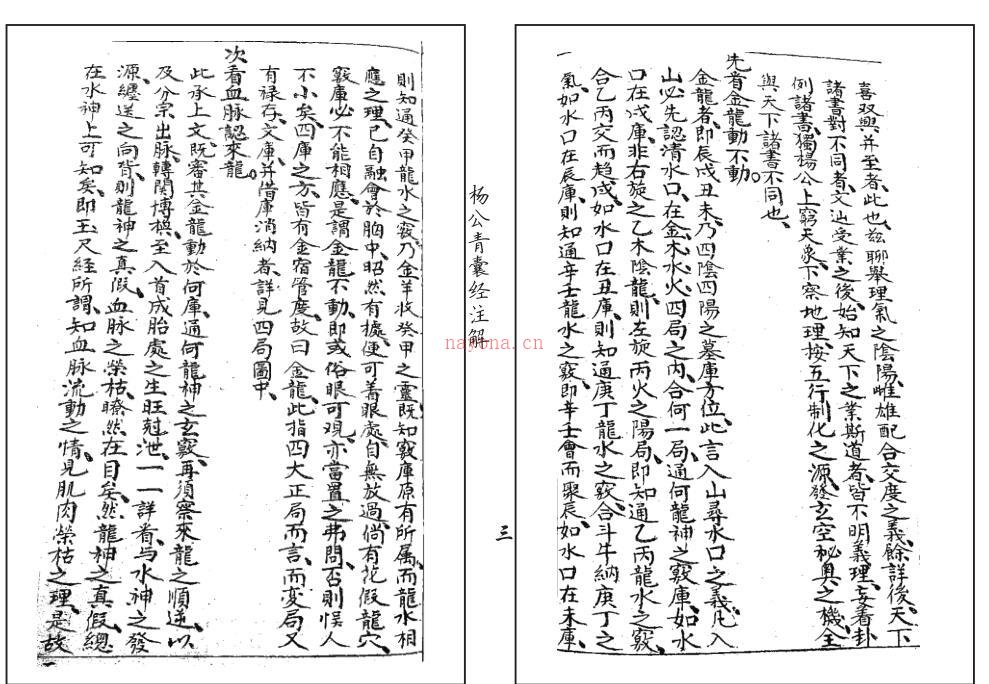 喜双與并至者、此也、玆聊舉理氣之陰陽、雌雄配合交度之義、餘詳後、天下
諸書對不同者、文辿受業之後、始知天下之業斯道者、皆不明義理、妄看卦
例諸書、獨楊公上窮天象、下察地理、按五行制化之源、發玄空祕奥之機、全
與天下諸書不同也、
先看金龍動不動。
金龍者、即辰戌丑未、乃四陰四陽之墓庫方位、此言入山尋水口之義、凡入
山必先認清水口、在金木水火四局之內、合何一局、通何龍神之竅庫、如水
口在戌庫、非右旋之乙木陰龍、則左旋丙火之陽局、即知通乙丙龍水之竅、
合乙丙交而趋戌、如水口在丑庫、則知通庚丁龍水之竅、合斗牛納庚丁之
氣、如水口在辰庫、則知通辛壬龍水之竅、即辛壬會而聚辰、如水口在未庫、
杨公青囊经注解
三
則知通癸甲龍水之竅、乃金羊收癸甲之靈、既知竅庫原有所属、而龍水相
應之理、已自融會於胸中、昭然有據、便可着眼處、自無放過、倘有花假龍穴、
竅庫必不能相應、是謂金龍不動、即或俗眼可观、亦當置之弗問、否則悮人
不小矣、四庫之方、皆有金宿管度、故曰金龍、此指四大正局而言、而变局又
有禄存、文庫、并借庫消納者、詳見四局圖中、
次看血脉認來龍。
此承上文、既審其金龍動於何庫、通何龍神之玄竅、再須察來龍之順逆、以
及分宗出脉、轉関博換、至入首成胎處之生旺尅泄、一一詳看、与水神之發
源、纏送之向背、則龍神之真假、血脉之榮枯、瞭然在目矣、然龍神之真假、總
在水神上可知矣、即玉尺經所謂、知血脉流動之情、見肌肉榮枯之理、是故
nayona.cn